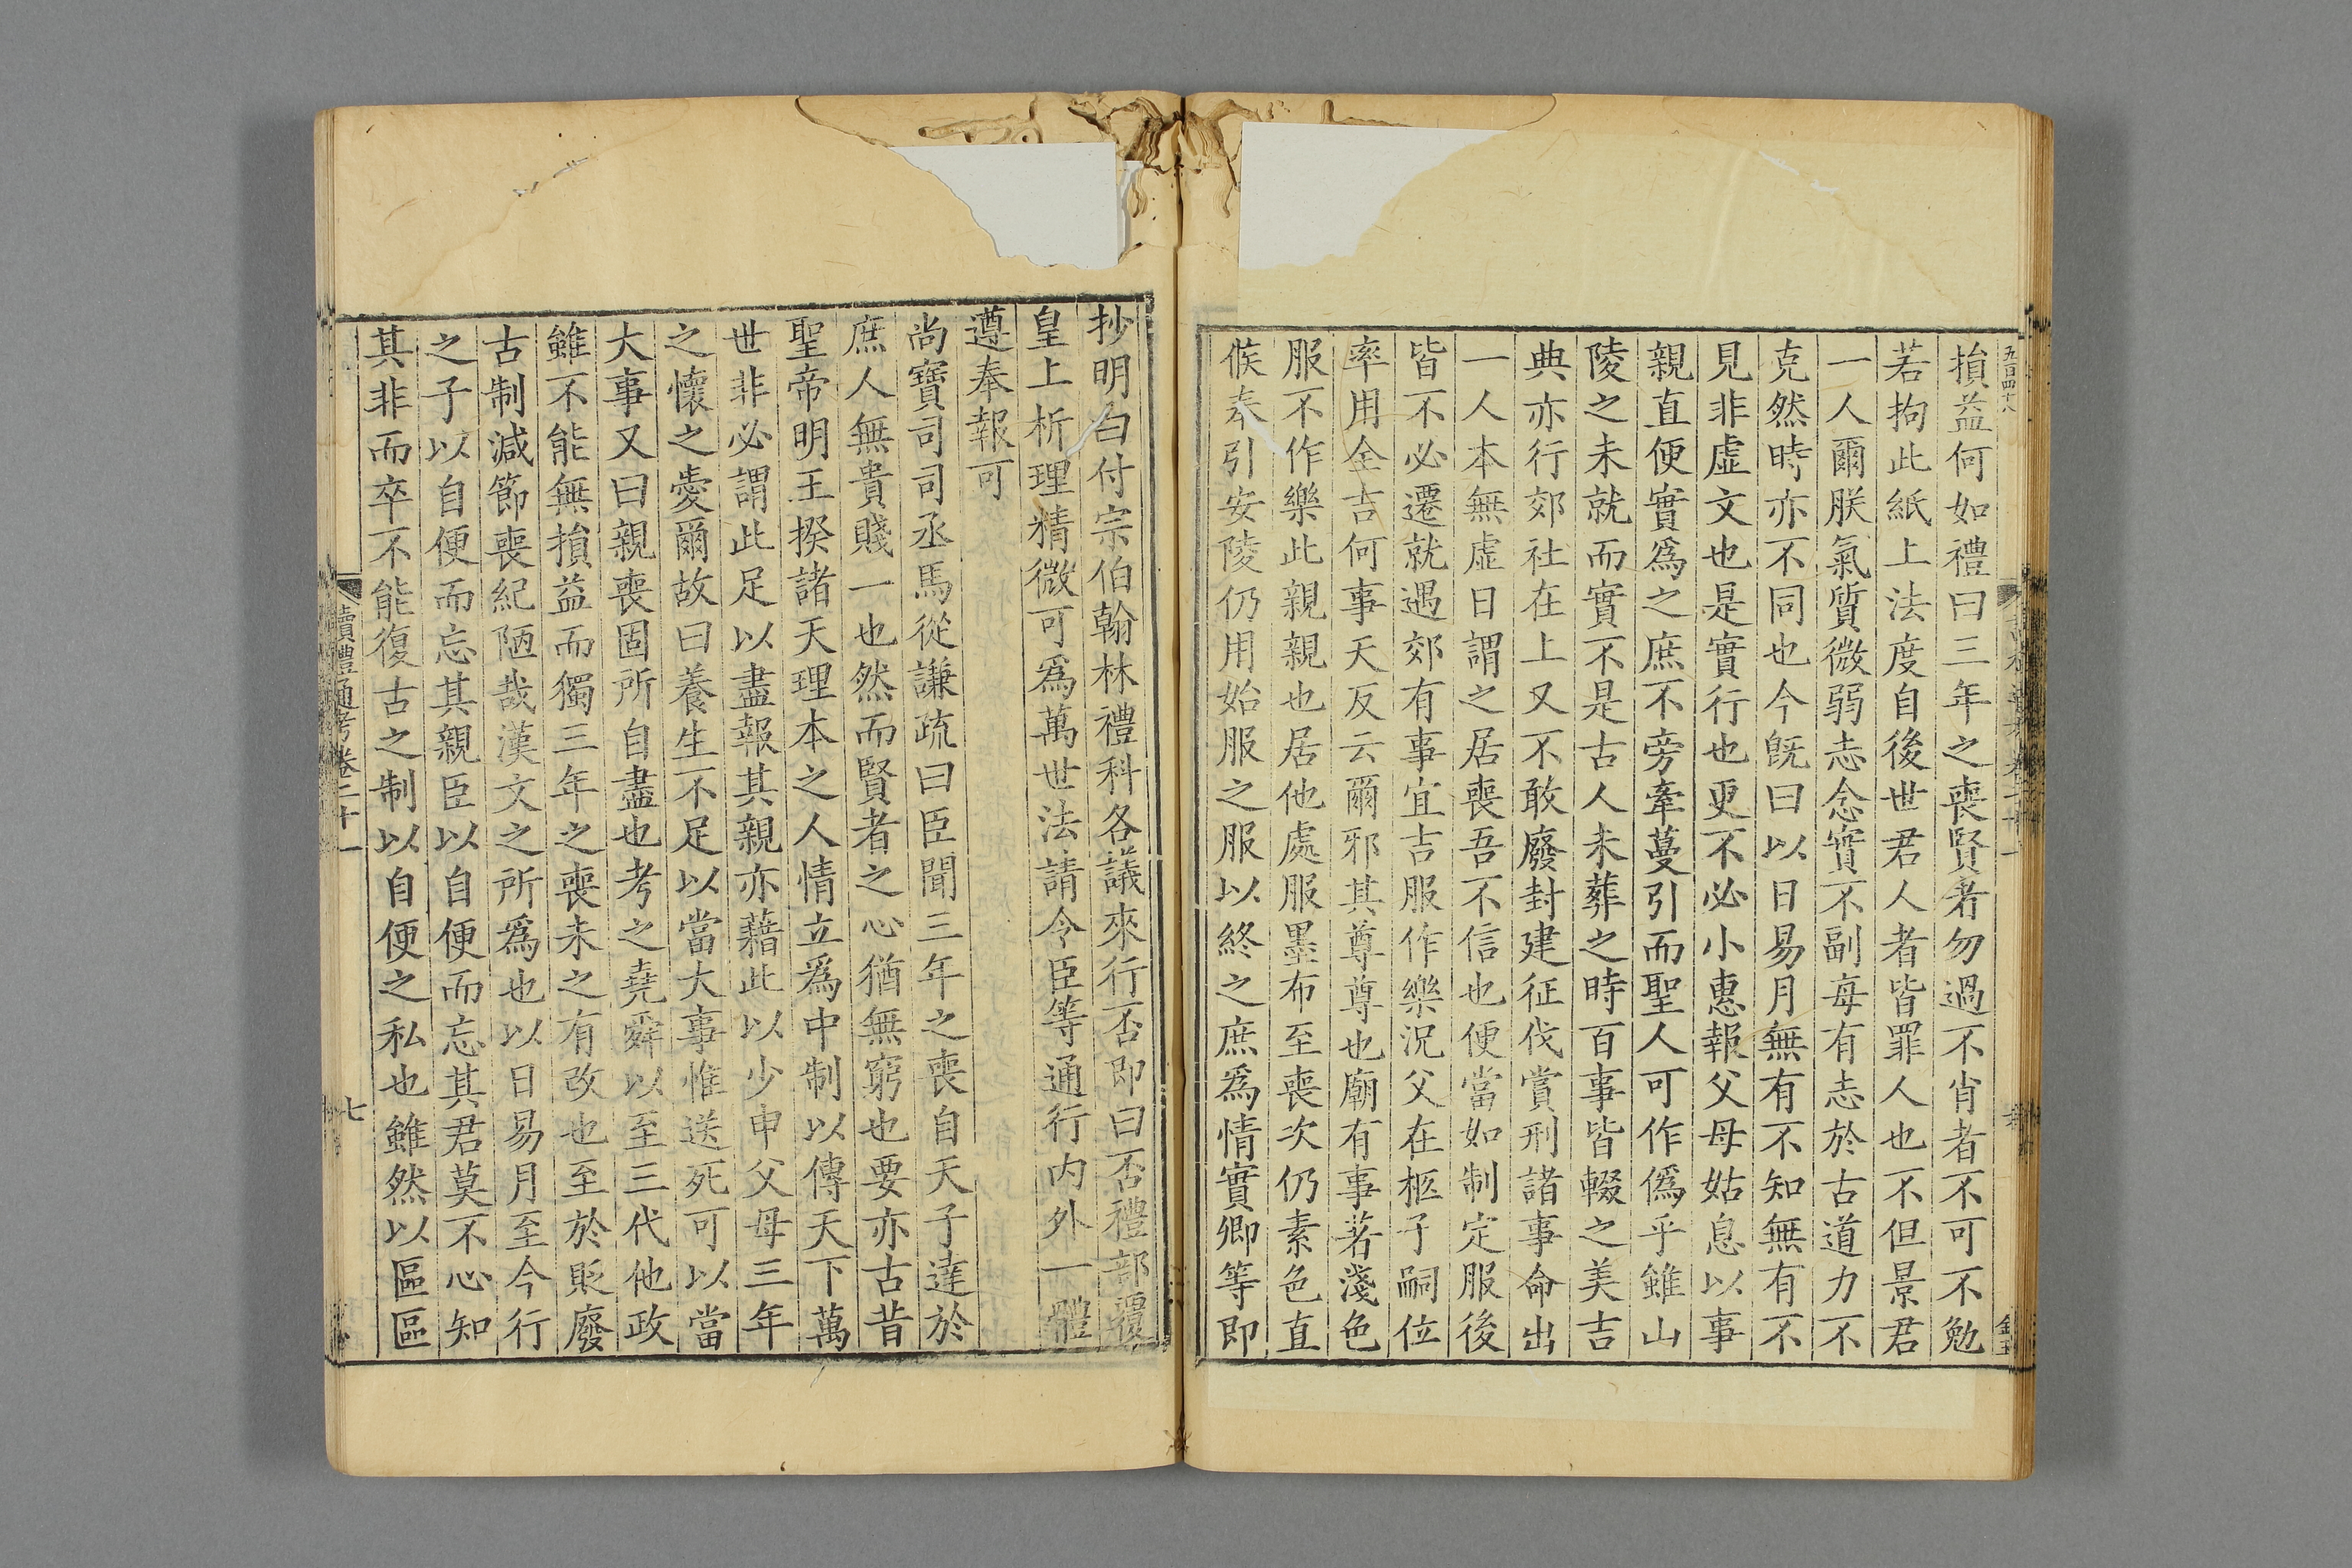 五百四十八
損益何如禮曰三年之喪賢者勿過不肖者不可不勉
若拘此紙上法度自後世君人者皆罪人也不但景君
一人爾朕氣質微弱志念實不副每有志於古道力不
克然時亦不同也今旣曰以日易月無有不知無有不
見非虛文也是實行也更不必小惠報父母姑息以事
親直便實爲之庶不旁牽蔓引而聖人可作僞乎雖山
陵之未就而實不是古人未葬之時百事皆輟之美吉
典亦行郊社在上又不敢廢封建征伐賞刑諸事命出
一人本無虛日謂之居喪吾不信也便當如制定服後
皆不必遷就遇郊有事宜吉服作樂況父在柩子嗣位
率用全吉何事天反云爾邪其尊尊也廟有事若淺色
服不作樂此親親也居他處服墨布至喪次仍素色直
候奉引安陵仍用始服之服以終之庶爲情實卿等即
抄明白付宗伯翰林禮科各議來行否即曰否禮部覆
皇上析理精微可爲萬世法請令臣等通行内外一體
遵奉報可
尚寶司司丞馬從謙疏曰臣聞三年之喪自天子達於
庶人無貴賤一也然而賢者之心猶無窮也要亦古昔
聖帝明王揆諸天理本之人情立爲中制以傳天下萬
世非必謂此足以盡報其親亦藉此以少申父母三年
之懷之愛爾故曰養生不足以當大事惟送死可以當
大事又曰親喪固所自盡也考之堯舜以至三代他政
雖不能無損益而獨三年之喪未之有改也至於貶廢
古制減節喪紀陋哉漢文之所爲也以日易月至今行
之子以自便而忘其親臣以自便而忘其君莫不心知
其非而卒不能復古之制以自便之私也雖然以區區
讀禮通考卷二十一
七